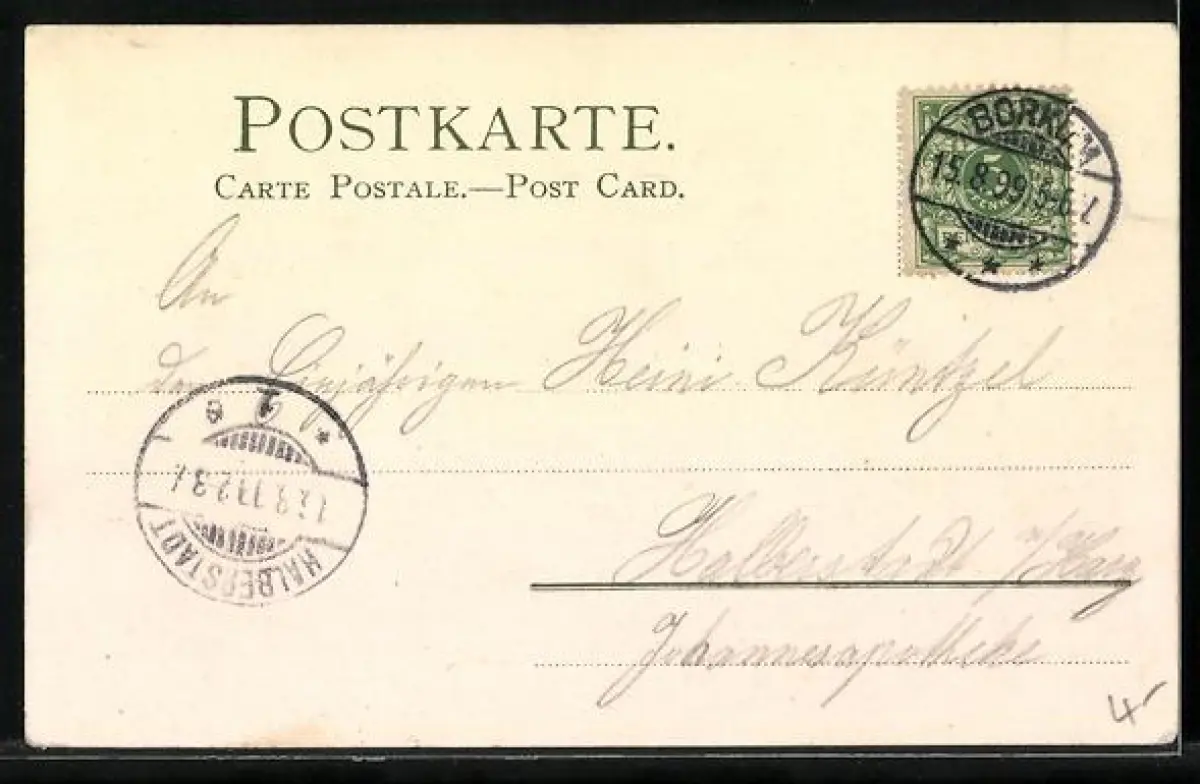 POSTKARTE.
CARTE POSTALE.—POST CARD.
BORKUM
15.8.99. 5-6.N.
5
An
den Einjährigen Heini Küntzel
HALBERSTADT
1
Halberstadt a/Harz
Johannesapotheke
4-